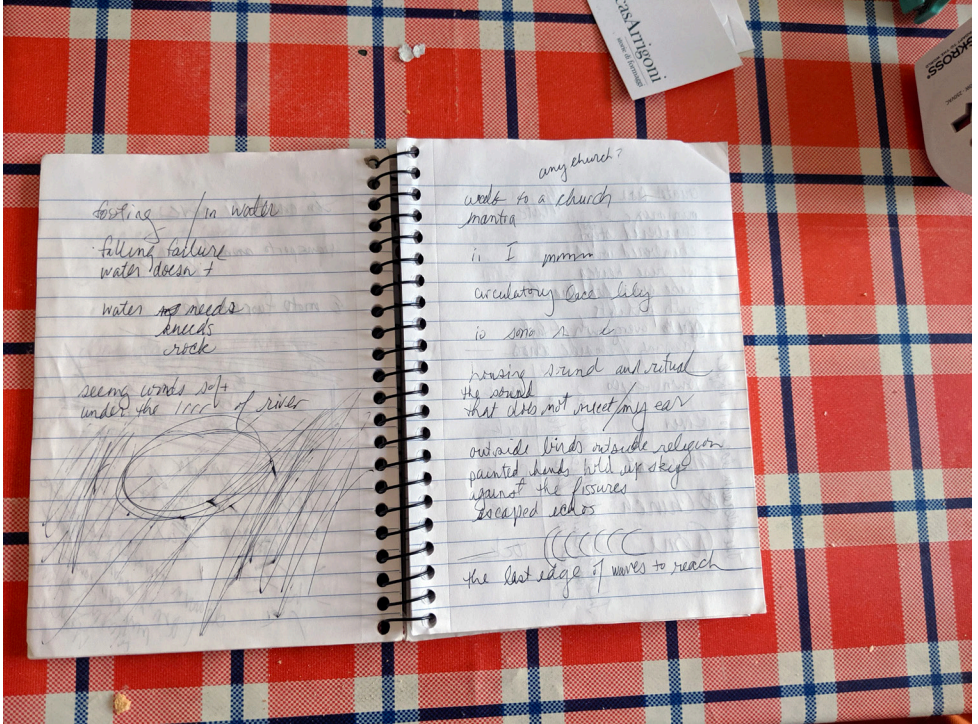 falling failure
water doesn t
water needs
kneeds
rock
seeing words soft
under the rrrr of river
in water
any church?
to a church
mantra
is I mmmm
circulatory lace lily
is song
housing sound and ritual
the sound
that does not meet/my ear
outside birds outside religion
painted hands hold up sky
against the fissures
escaped echos
((((((
the last edge of waves to reach
casArrigoni
storie di formaggi
SKROSS